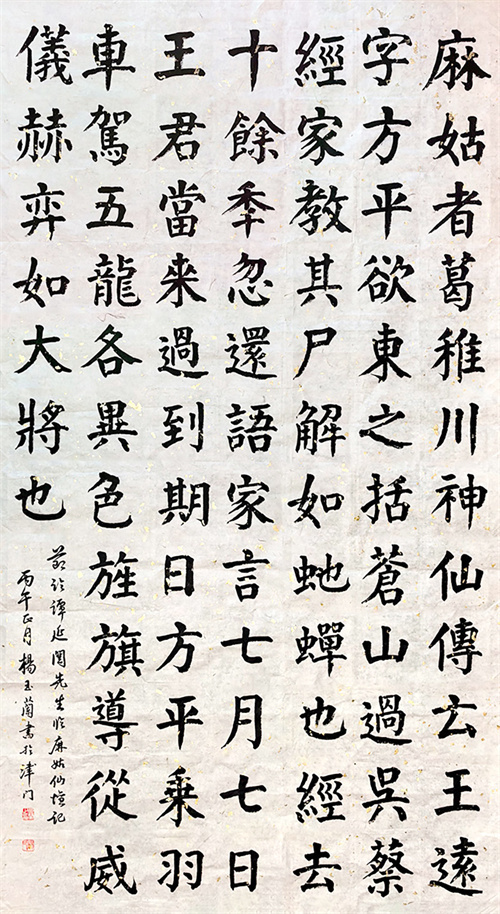 麻姑者葛稚川神仙傳云王遠
字方平欲東之括蒼山過吳蔡
經家教其尸解如虵蟬也經去
十餘秊忽還語家言七月七日
王君當来過到期日方平乘羽
車駕五龍各異色旌旗導從威
儀赫弈如大將也
節臨譚延闓先生臨麻姑仙壇記
丙午正月楊玉蘭書於津门